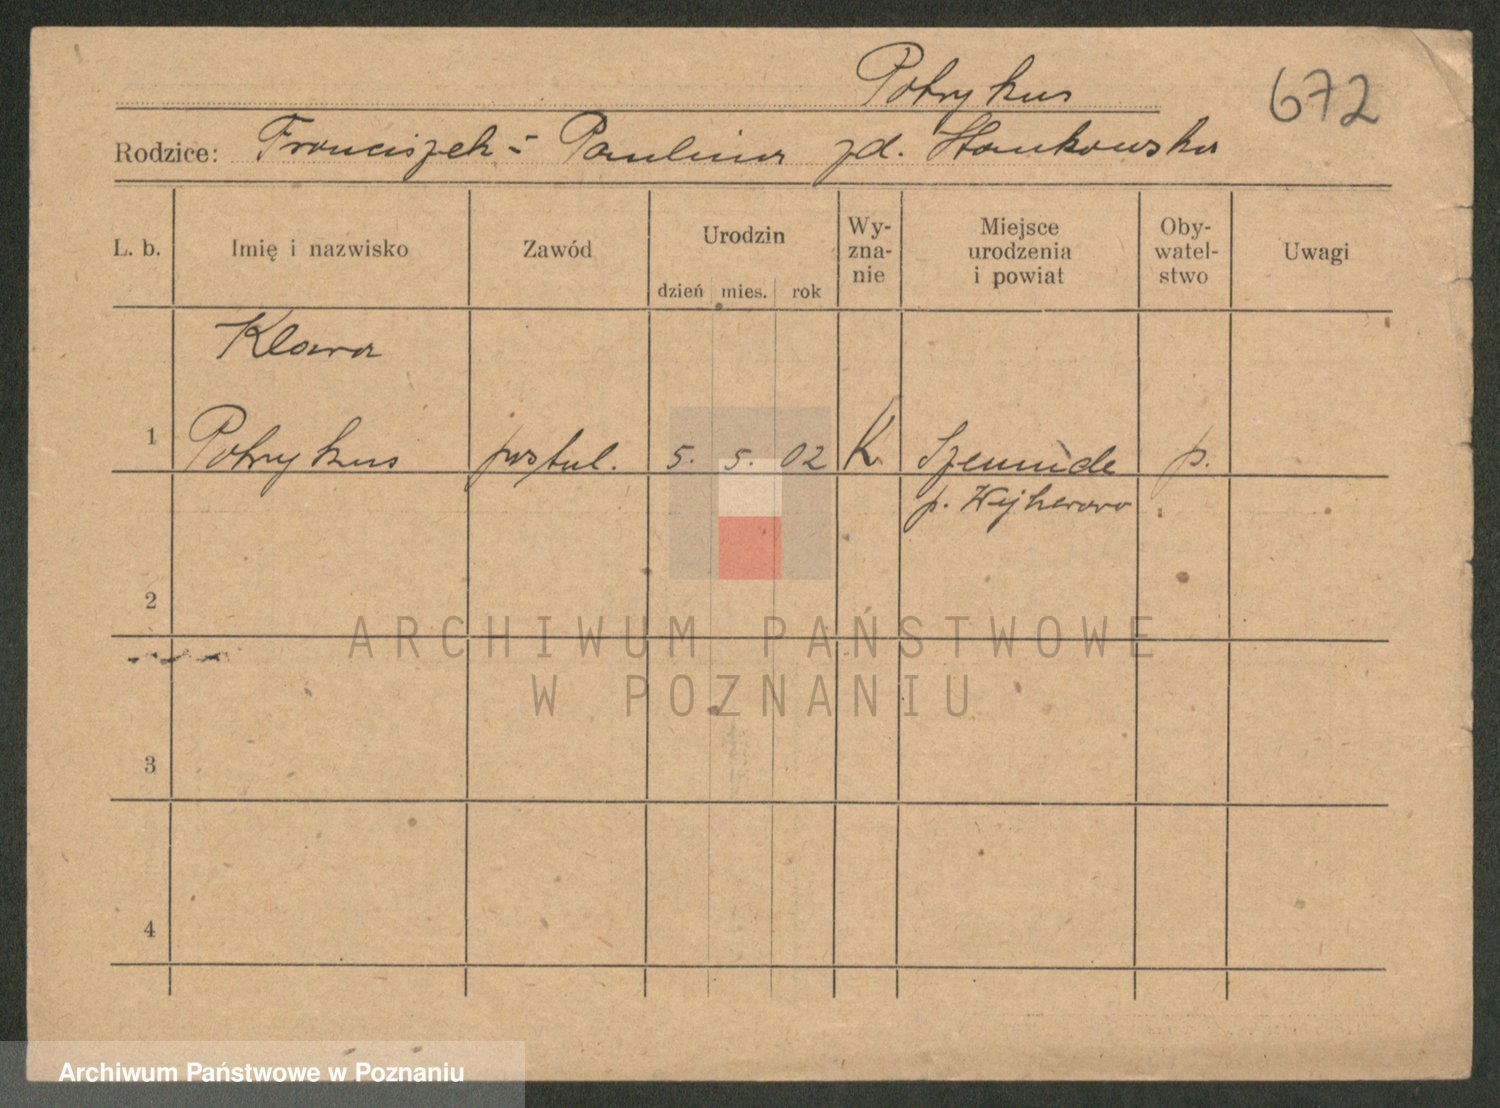 Potrykus
672
Rodzice: Franciszek - Paulina zd. Stankowska
L. b. Imię i nazwisko Zawód Urodzin dzień mies. rok Wy-zna-nie Miejsce urodzenia i powiat Oby-watel-stwo Uwagi
Klara
1 Potrykus postul. 5. 5. 02 K Szemude p.
p. Wejherowo
2
ARCHIWUM PAŃSTWOWE
W POZNANIU
3
4
Archiwum Państwowe w Poznaniu